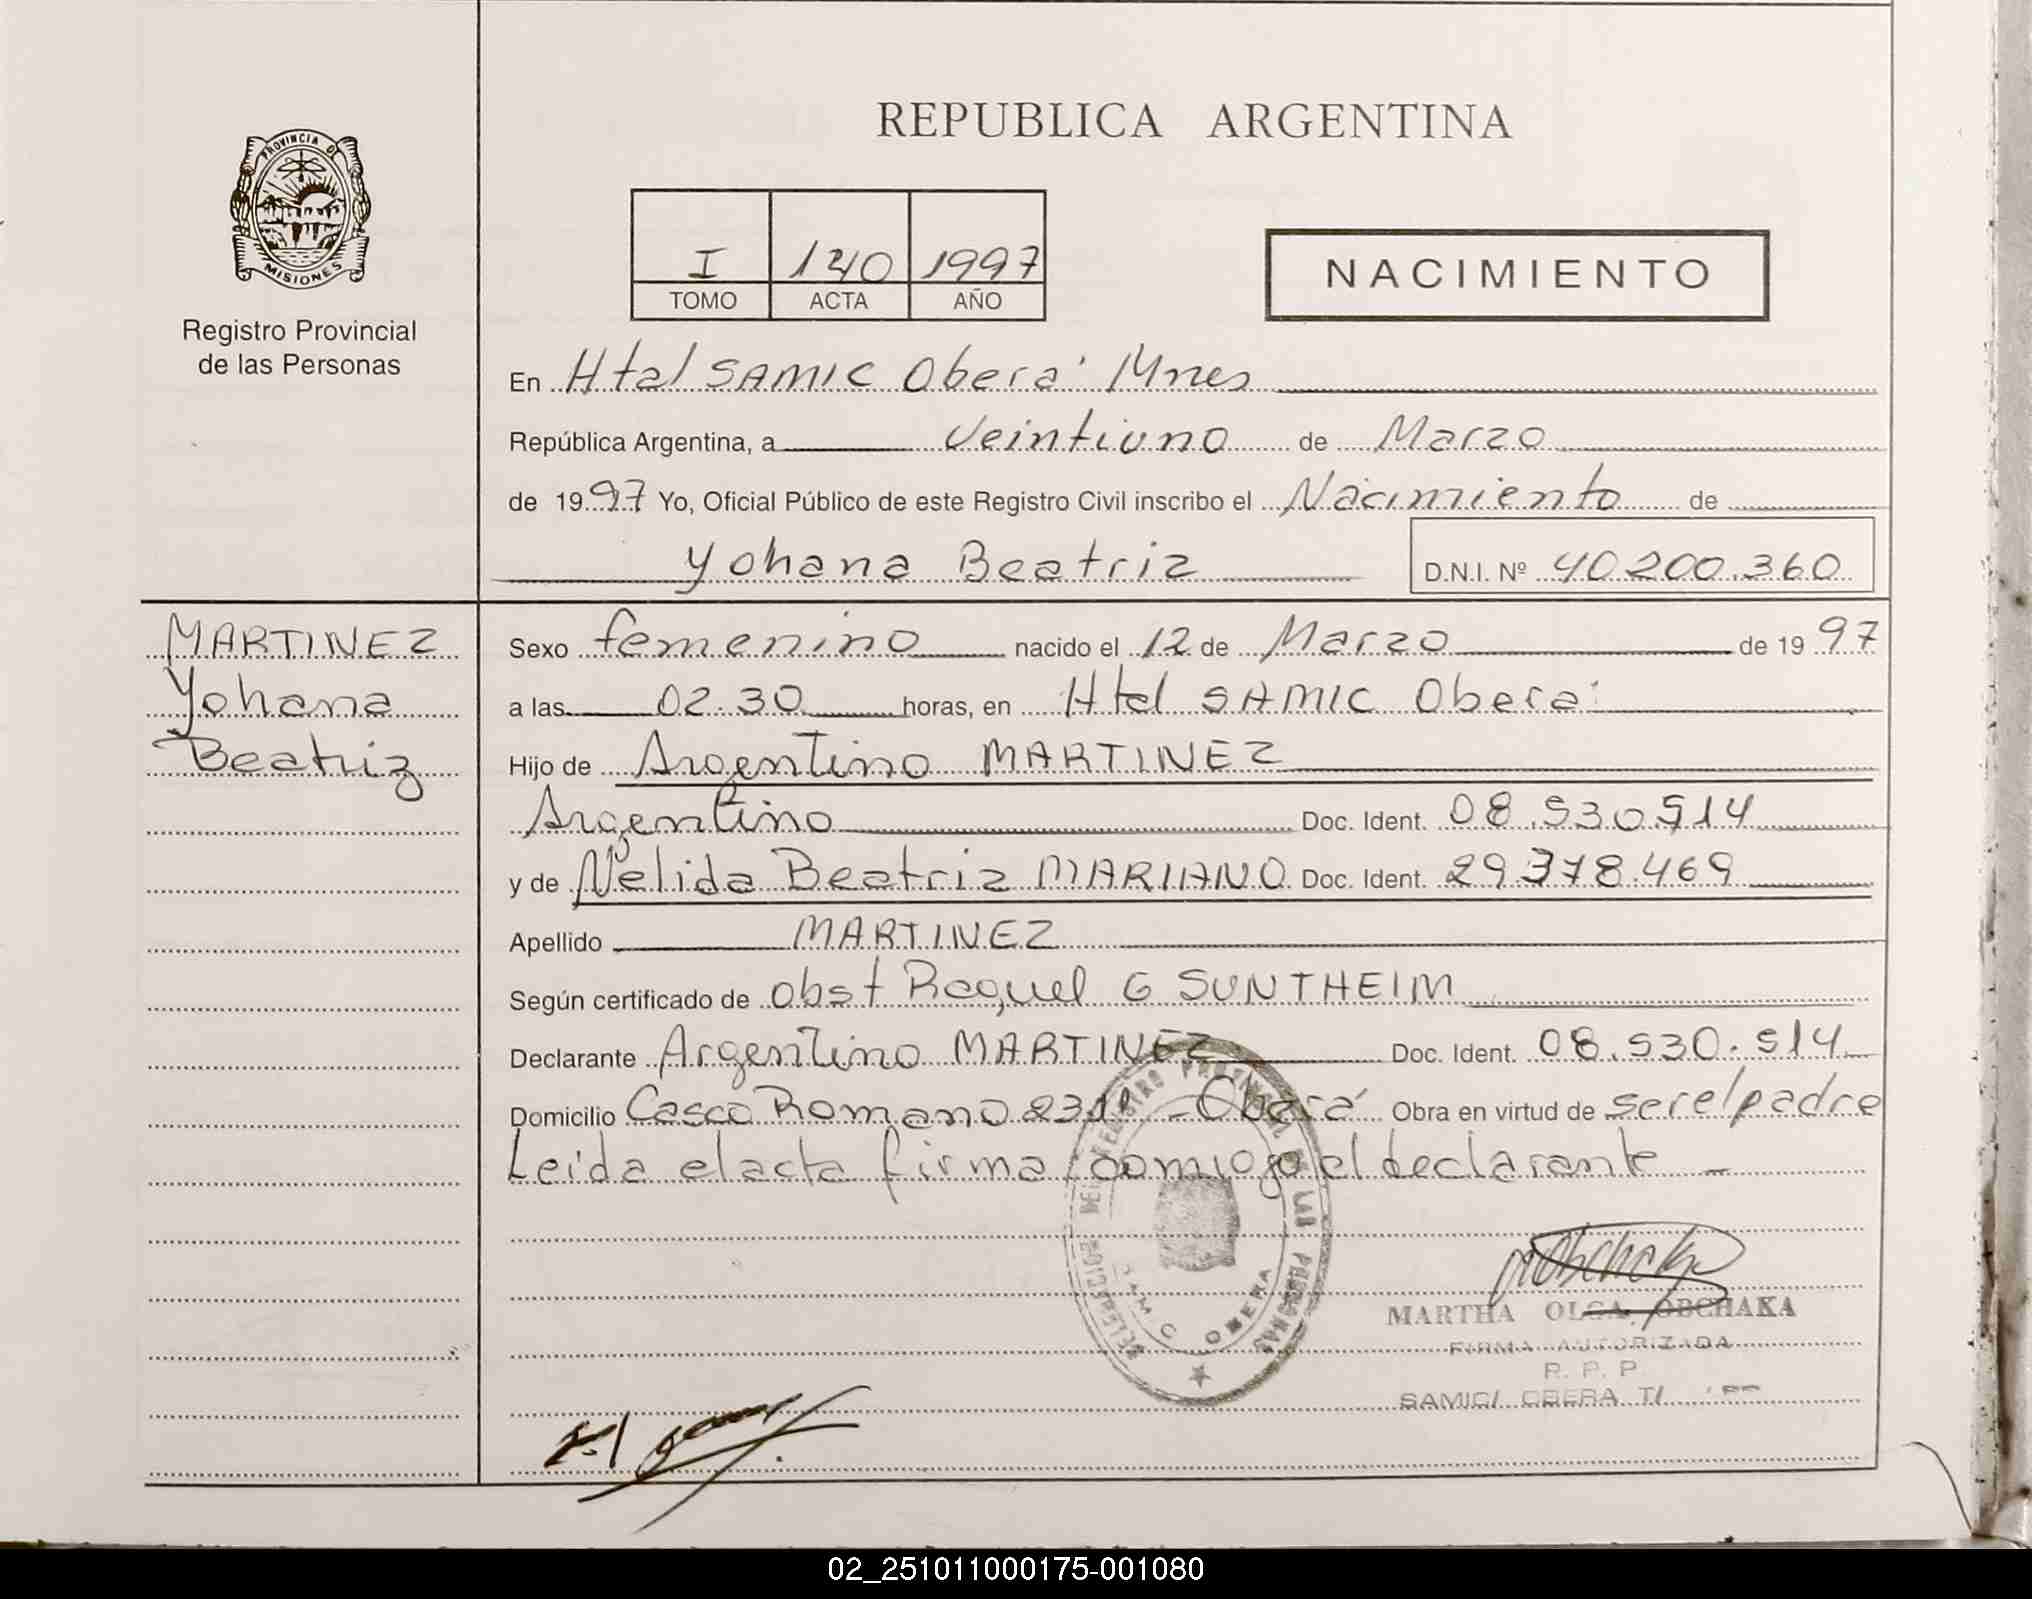 REPUBLICA ARGENTINA
PROVINCIA DE
MISIONES
Registro Provincial
de las Personas
I 140 1997
TOMO ACTA AÑO
NACIMIENTO
En Htal SAMIC Oberá Mnes
República Argentina, a Veintiuno de Marzo
de 1997 Yo, Oficial Público de este Registro Civil inscribo el Nacimiento de
Yohana Beatriz D.N.I. Nº 40.200.360
MARTINEZ
Yohana
Beatriz
Sexo femenino nacido el 12 de Marzo de 1997
a las 02.30 horas, en Htal SAMIC Oberá
Hijo de Argentino MARTINEZ
Argentino Doc. Ident. 08.530.514
y de Nelida Beatriz MARIANO Doc. Ident. 29.378.469
Apellido MARTINEZ
Según certificado de obst Raquel G SUNTHEIM
Declarante Argentino MARTINEZ Doc. Ident. 08.530.514
Domicilio Casco Romano - Oberá Obra en virtud de ser el padre
Leida el acta firma comigo el declarante -
DELEGACION DEL REGISTRO PROVINCIAL DE LAS PERSONAS
SAMIC OBERA
MARTHA OLGA OBCHAKA
FIRMA AUTORIZADA
R. P. P.
SAMIC/ OBERA
02_251011000175-001080